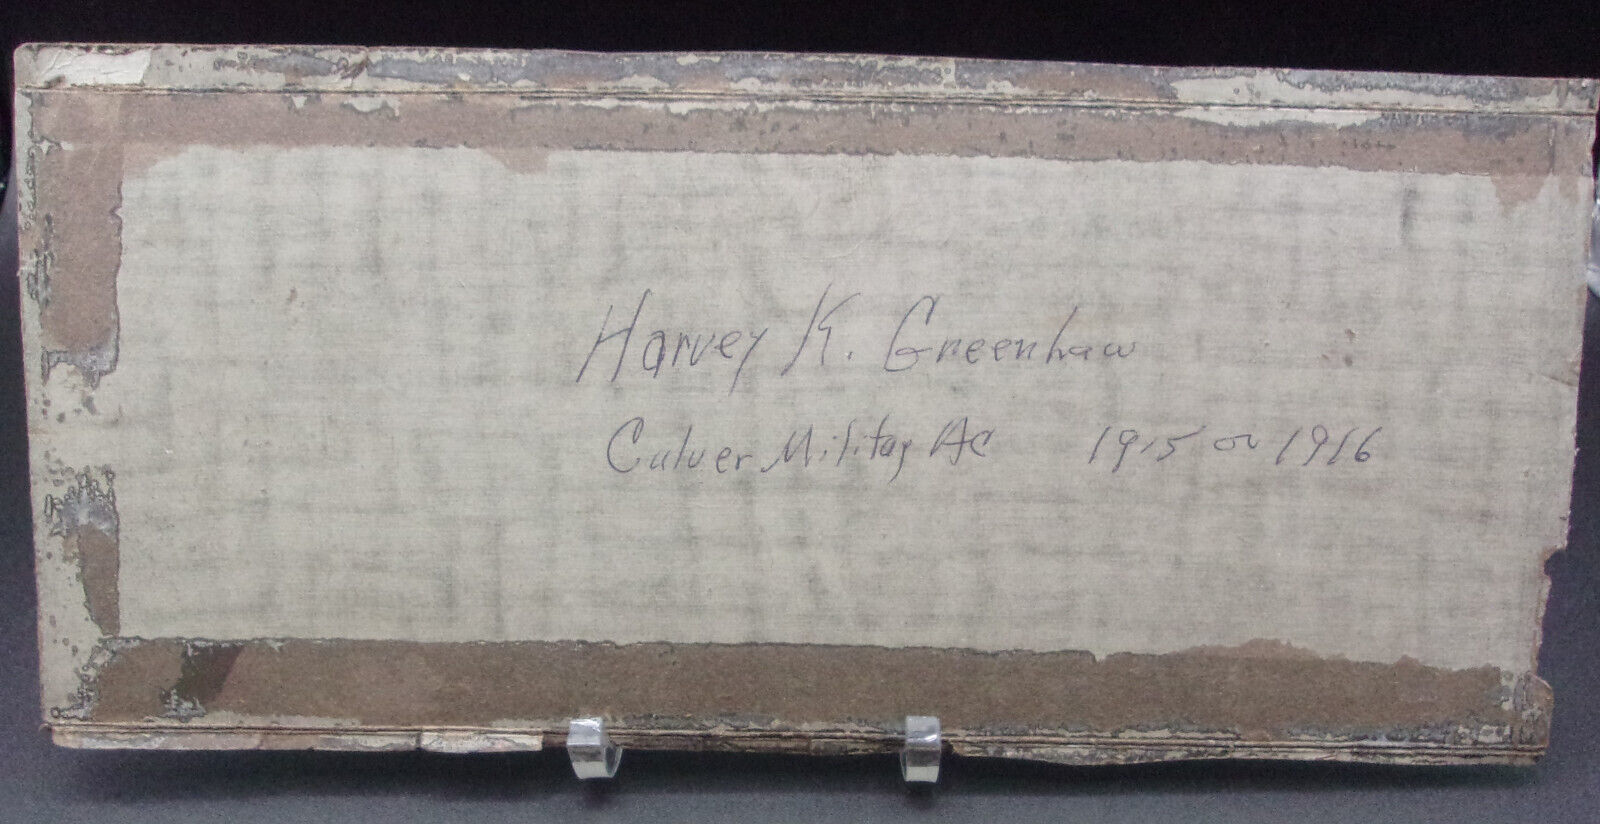 Harvey K. Greenhaw
Culver Militay Ac 1915 or 1916